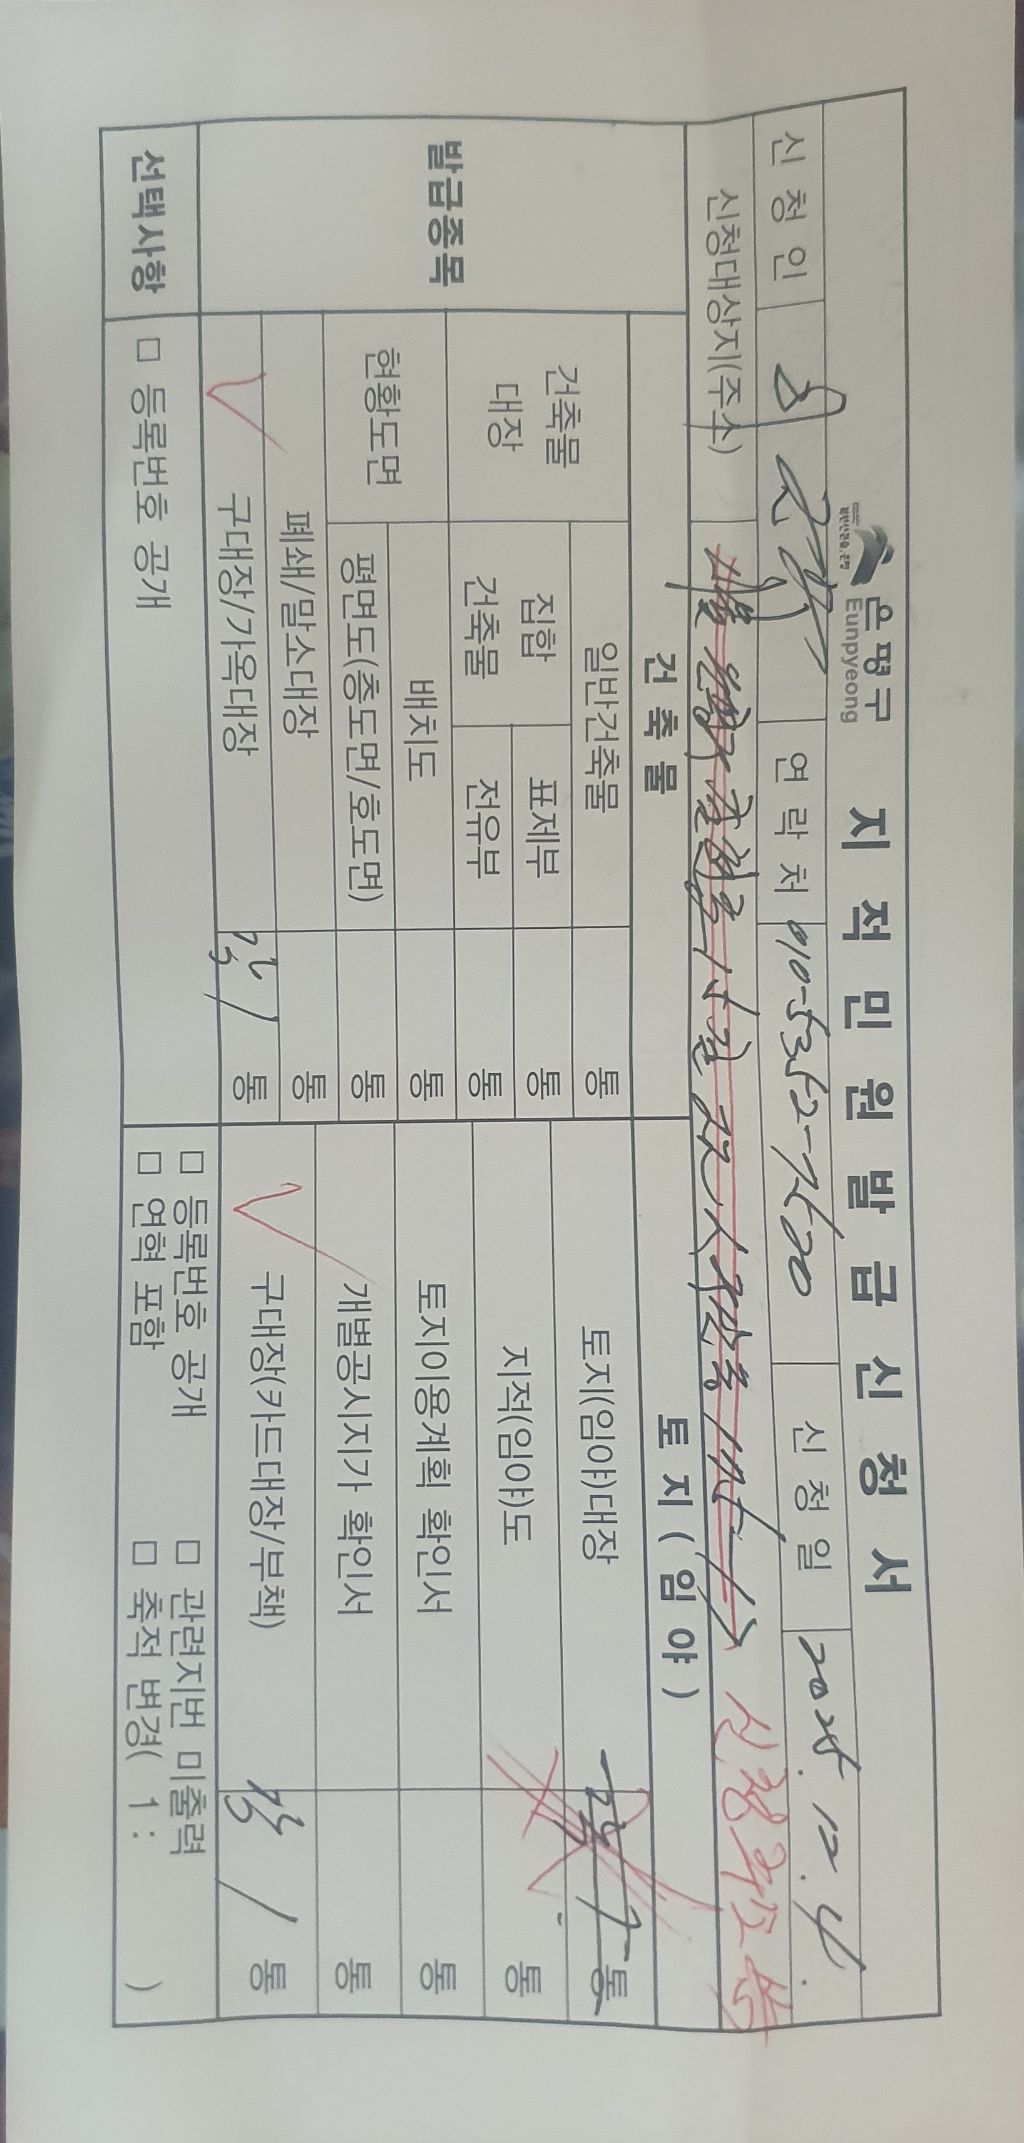 은평구
Eunpyeong
지적민원발급신청서
신청인
연락처 010-5352-7500
신청일 2025. 12. 4.
신청대상지(주소)
발급종목
건축물
토지(임야)
건축물대장
일반건축물 통
집합건축물
표제부 통
전유부 통
현황도면
배치도 통
평면도(층도면/호도면) 통
폐쇄/말소대장 통
구대장/가옥대장 각 1 통
토지(임야)대장 통
지적(임야)도 통
토지이용계획 확인서 통
개별공시지가 확인서 통
구대장(카드대장/부책) 각 1 통
선택사항
□ 등록번호 공개
□ 등록번호 공개 □ 관련지번 미출력
□ 연혁 포함 □ 축적 변경( 1 : )